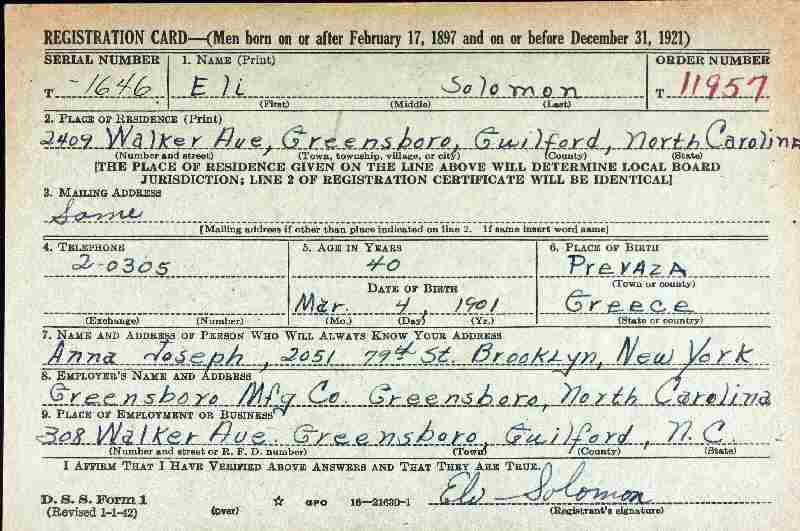 REGISTRATION CARD—(Men born on or after February 17, 1897 and on or before December 31, 1921)
SERIAL NUMBER 1. NAME (Print) ORDER NUMBER
T -1646 Eli Solomon T 11957
(First) (Middle) (Last)
2. PLACE OF RESIDENCE (Print)
2409 Walker Ave, Greensboro, Guilford, North Carolina
(Number and street) (Town, township, village, or city) (County) (State)
[THE PLACE OF RESIDENCE GIVEN ON THE LINE ABOVE WILL DETERMINE LOCAL BOARD
JURISDICTION; LINE 2 OF REGISTRATION CERTIFICATE WILL BE IDENTICAL]
3. MAILING ADDRESS
Same
[Mailing address if other than place indicated on line 2. If same insert word same]
4. TELEPHONE 5. AGE IN YEARS 6. PLACE OF BIRTH
2-0305 40 Prevaza
(Town or county)
DATE OF BIRTH
Mar. 4, 1901 Greece
(Exchange) (Number) (Mo.) (Day) (Yr.) (State or country)
7. NAME AND ADDRESS OF PERSON WHO WILL ALWAYS KNOW YOUR ADDRESS
Anna Joseph, 2051 79th St. Brooklyn, New York
8. EMPLOYER'S NAME AND ADDRESS
Greensboro Mfg Co. Greensboro, North Carolina
9. PLACE OF EMPLOYMENT OR BUSINESS
308 Walker Ave. Greensboro, Guilford, N.C.
(Number and street or R. F. D. number) (Town) (County) (State)
I AFFIRM THAT I HAVE VERIFIED ABOVE ANSWERS AND THAT THEY ARE TRUE.
D. S. S. Form 1
(Revised 1-1-42) (over) ☆ GPO 16—21630-1 Eli Solomon
(Registrant's signature)